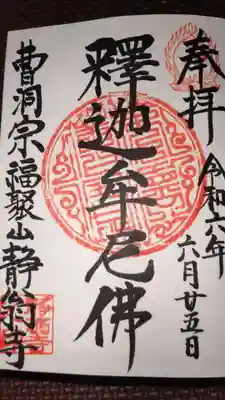 奉拝
令和六年
六月廿五日
釋迦牟尼佛
曹洞宗福聚山静翁寺